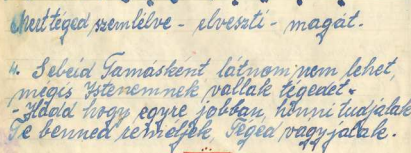 Mert téged szemlélve - elveszti - magát.
4. Sebeid Tamásként, látnom nem lehet,
mégis Istenemnek vallak tégedet.
- Hadd hogy egyre jobban, hinni tudjalak
Te benned reméljek, Téged vagyjalak.